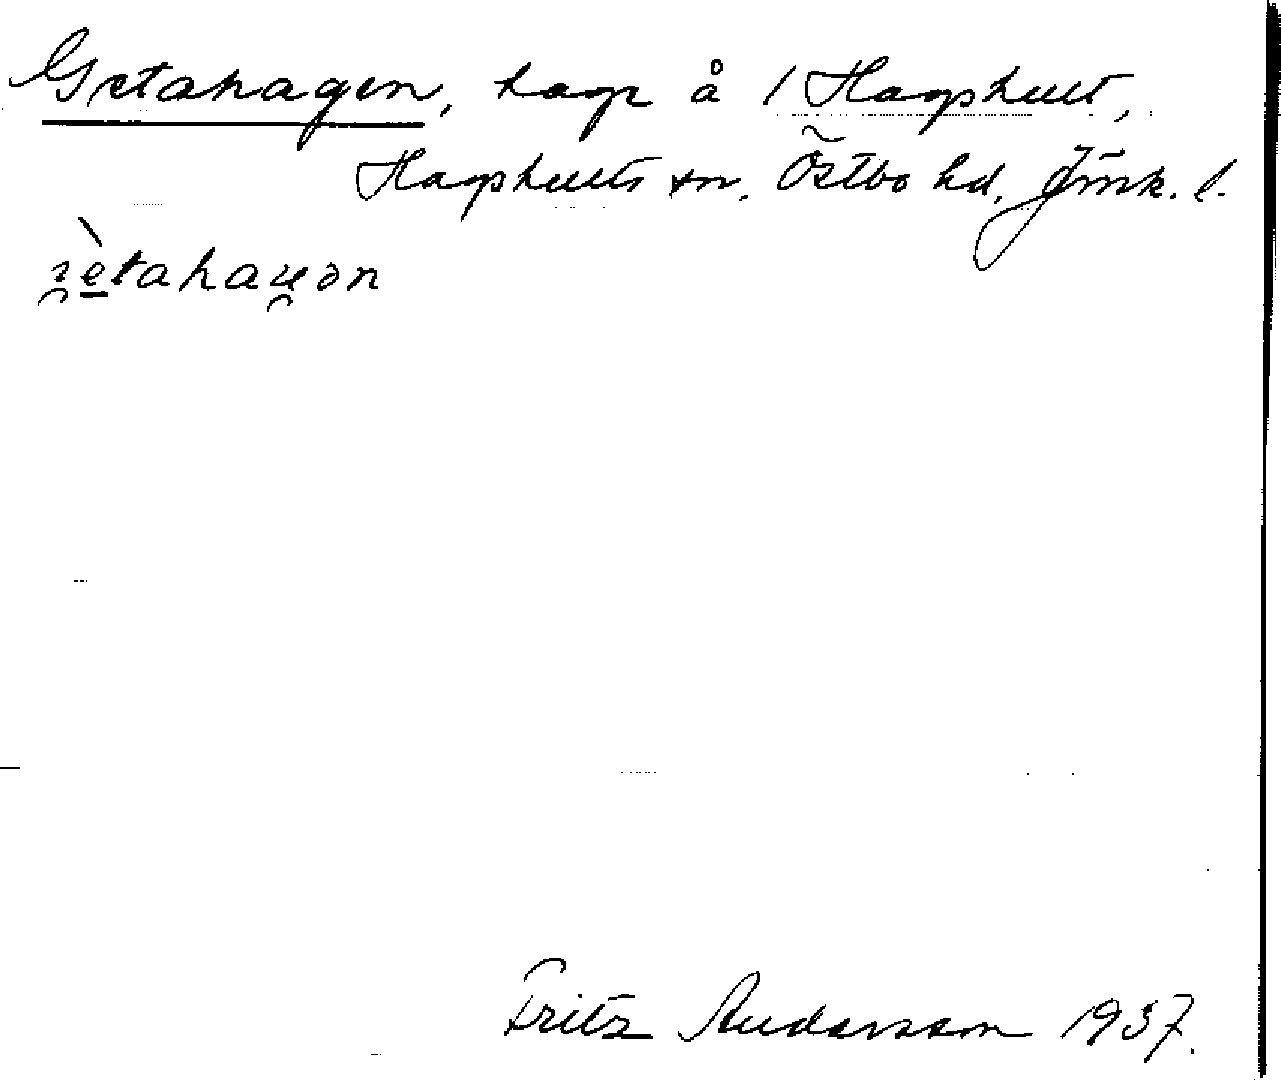 Getahagen, hage å 1 Hagshult,
Hagshults sn. Östbo hd, Jönk. l.
Fritz Andersson 1937.